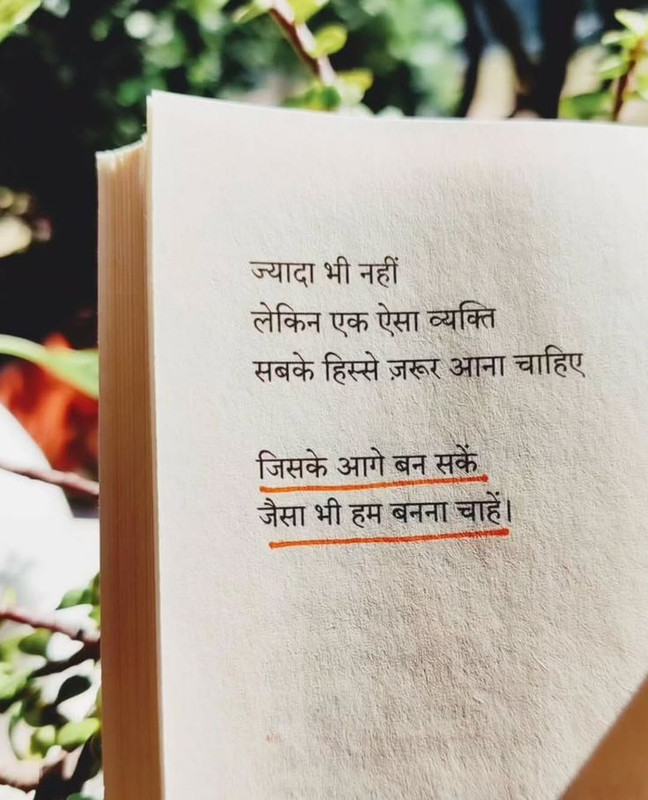 ज्यादा भी नहीं
लेकिन एक ऐसा व्यक्ति
सबके हिस्से ज़रूर आना चाहिए
जिसके आगे बन सकें
जैसा भी हम बनना चाहें।